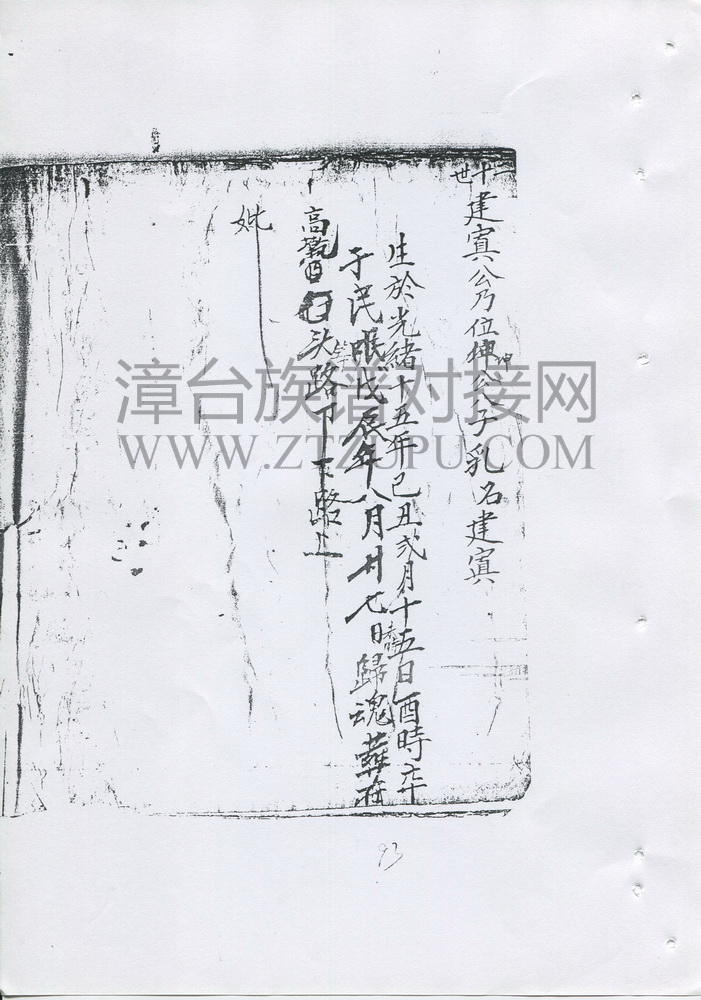 二十世
建寅公乃位绅公子乳名建寅
坤
生於光绪十五年己丑弍月十五日酉時卒
于民眠戊辰年八月廿七日歸魂葬在
高 头路下下路上
妣
93
漳台族谱对接网
WWW.ZTZUPU.COM